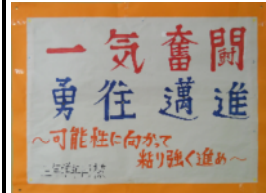 一気奮闘
勇往邁進
～可能性に向かって
粘り強く進め～